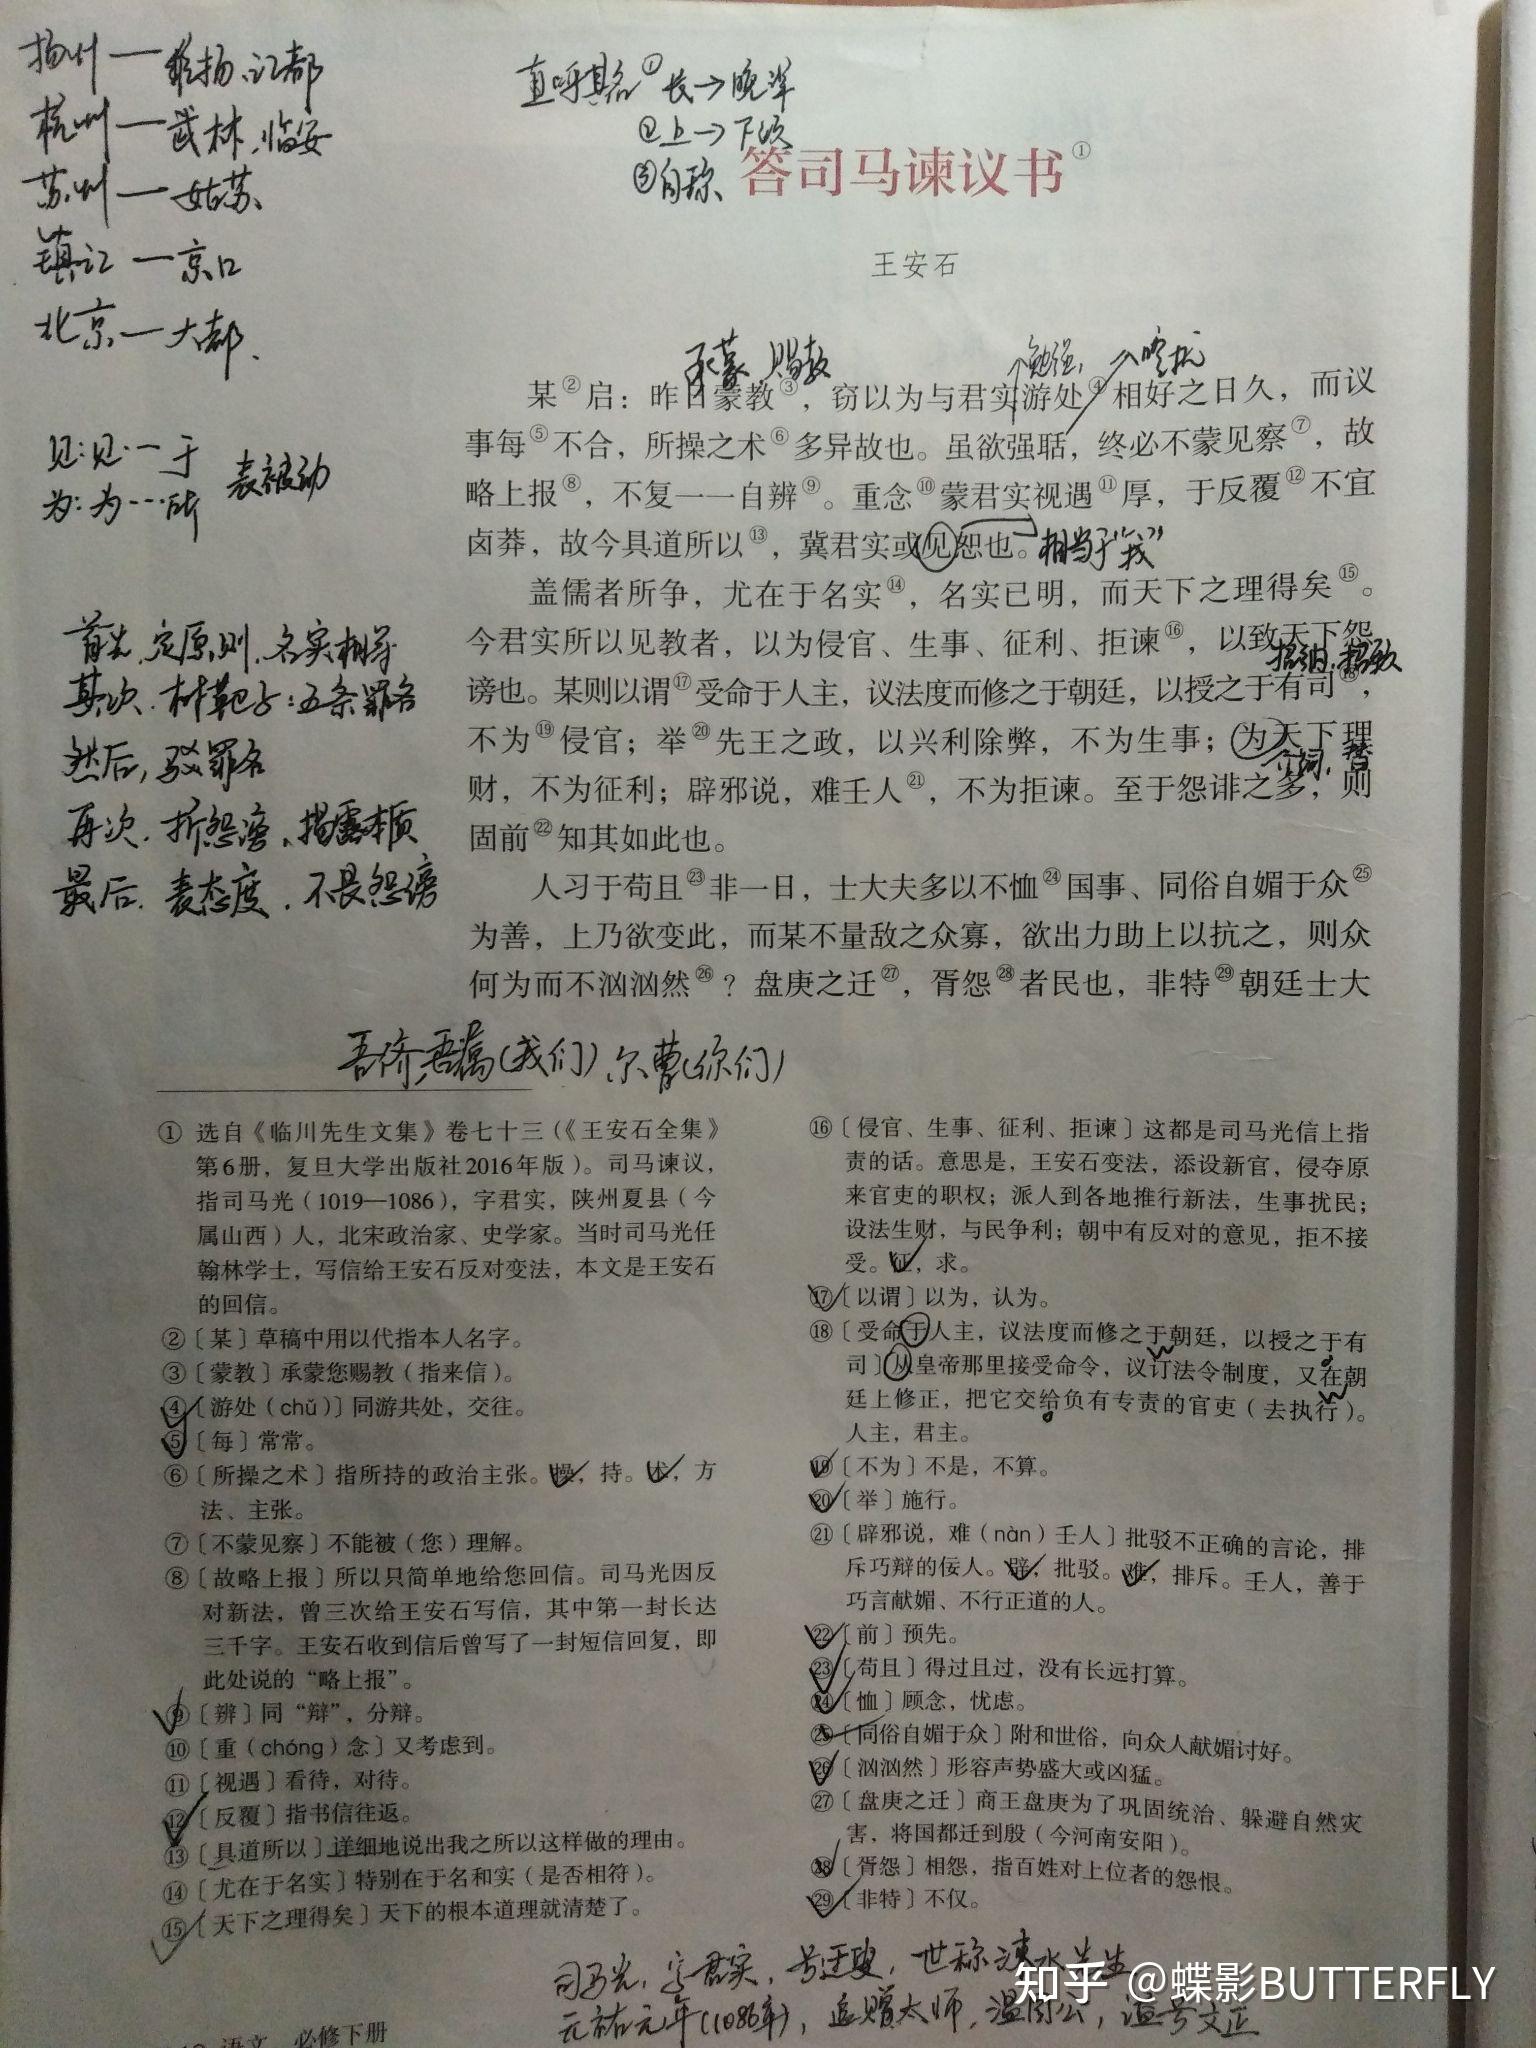 扬州—维扬、江都
杭州—武林、临安
苏州—姑苏、
镇江—京口
北京—大都、
直呼其名①长→晚辈
②上→下级
③自称
答司马谏议书①
王安石
见:见…于
为:为…所
表被动
首先,定原则,名实相符
其次,树靶子:五条罪名
然后,驳罪名
再次,析怨谤,揭露本质
最后,表态度,不畏怨谤
承蒙 赐教
勉强, 喧扰
某②启：昨日蒙教③，窃以为与君实游处④相好之日久，而议
事每⑤不合，所操之术⑥多异故也。虽欲强聒，终必不蒙见察⑦，故
略上报⑧，不复一一自辨⑨。重念⑩蒙君实视遇⑪厚，于反覆⑫不宜
卤莽，故今具道所以⑬，冀君实或见恕也。相当于“我”
盖儒者所争，尤在于名实⑭，名实已明，而天下之理得矣⑮。
今君实所以见教者，以为侵官、生事、征利、拒谏⑯，以致天下怨
招纳,招致
谤也。某则以谓⑰受命于人主，议法度而修之于朝廷，以授之于有司⑱，
不为⑲侵官；举⑳先王之政，以兴利除弊，不为生事；为天下理
介词,替
财，不为征利；辟邪说，难壬人㉑，不为拒谏。至于怨诽之多，则
固前㉒知其如此也。
人习于苟且㉓非一日，士大夫多以不恤㉔国事、同俗自媚于众㉕
为善，上乃欲变此，而某不量敌之众寡，欲出力助上以抗之，则众
何为而不汹汹然㉖？盘庚之迁㉗，胥怨㉘者民也，非特㉙朝廷士大
吾侪,吾属(我们)、尔曹(你们)
① 选自《临川先生文集》卷七十三（《王安石全集》
第6册，复旦大学出版社2016年版）。司马谏议，
指司马光（1019—1086），字君实，陕州夏县（今
属山西）人，北宋政治家、史学家。当时司马光任
翰林学士，写信给王安石反对变法，本文是王安石
的回信。
②〔某〕草稿中用以代指本人名字。
③〔蒙教〕承蒙您赐教（指来信）。
④〔游处（chǔ）〕同游共处，交往。
⑤〔每〕常常。
⑥〔所操之术〕指所持的政治主张。操，持。术，方
法、主张。
⑦〔不蒙见察〕不能被（您）理解。
⑧〔故略上报〕所以只简单地给您回信。司马光因反
对新法，曾三次给王安石写信，其中第一封长达
三千字。王安石收到信后曾写了一封短信回复，即
此处说的“略上报”。
⑨〔辨〕同“辩”，分辩。
⑩〔重（chóng）念〕又考虑到。
⑪〔视遇〕看待，对待。
⑫〔反覆〕指书信往返。
⑬〔具道所以〕详细地说出我之所以这样做的理由。
⑭〔尤在于名实〕特别在于名和实（是否相符）。
⑮〔天下之理得矣〕天下的根本道理就清楚了。
⑯〔侵官、生事、征利、拒谏〕这都是司马光信上指
责的话。意思是，王安石变法，添设新官，侵夺原
来官吏的职权；派人到各地推行新法，生事扰民；
设法生财，与民争利；朝中有反对的意见，拒不接
受。征，求。
⑰〔以谓〕以为，认为。
⑱〔受命于人主，议法度而修之于朝廷，以授之于有
司〕从皇帝那里接受命令，议订法令制度，又在朝
廷上修正，把它交给负有专责的官吏（去执行）。
人主，君主。
⑲〔不为〕不是，不算。
⑳〔举〕施行。
㉑〔辟邪说，难（nàn）壬人〕批驳不正确的言论，排
斥巧辩的佞人。辟，批驳。难，排斥。壬人，善于
巧言献媚、不行正道的人。
㉒〔前〕预先。
㉓〔苟且〕得过且过，没有长远打算。
㉔〔恤〕顾念，忧虑。
㉕〔同俗自媚于众〕附和世俗，向众人献媚讨好。
㉖〔汹汹然〕形容声势盛大或凶猛。
㉗〔盘庚之迁〕商王盘庚为了巩固统治、躲避自然灾
害，将国都迁到殷（今河南安阳）。
㉘〔胥怨〕相怨，指百姓对上位者的怨恨。
㉙〔非特〕不仅。
司马光,字君实,号迂叟,世称涑水先生
元祐元年(1086年),追赠太师,温国公,谥号文正
语文 必修下册
知乎 @蝶影BUTTERFLY